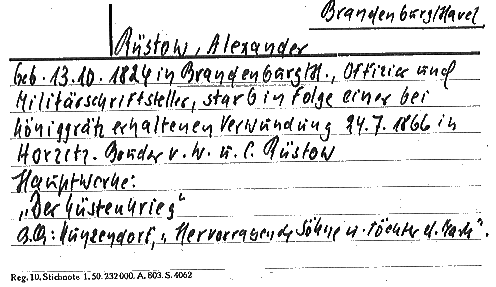 Brandenburg/Havel
Rüstow, Alexander
geb. 13.10.1824 in Brandenburg/H., Offizier und
Militärschriftsteller, starb in Folge einer bei
Königgrätz erhaltenen Verwundung 24.7.1866 in
Horzitz. Bruder v. W. u. C. Rüstow
Hauptwerke:
„Der Küstenkrieg"
B.Q.: Kunzendorf, „Hervorragende Söhne u. Töchter d. Mark".
Reg. 10. Stichnote 1. 50. 232000. A. 803. S. 4062